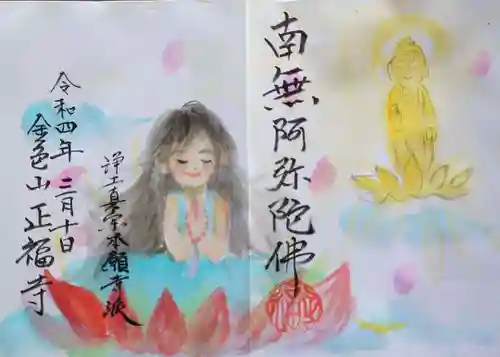 南無阿弥陀佛
浄土真宗本願寺派
令和四年二月十日
金色山正福寺